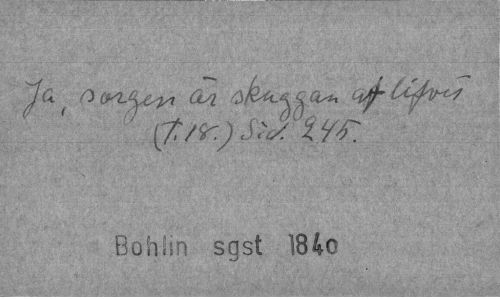 Ja, sorgen är skuggan af lifvets
(T. 18.) Sid. 245.
Bohlin sgst 1840